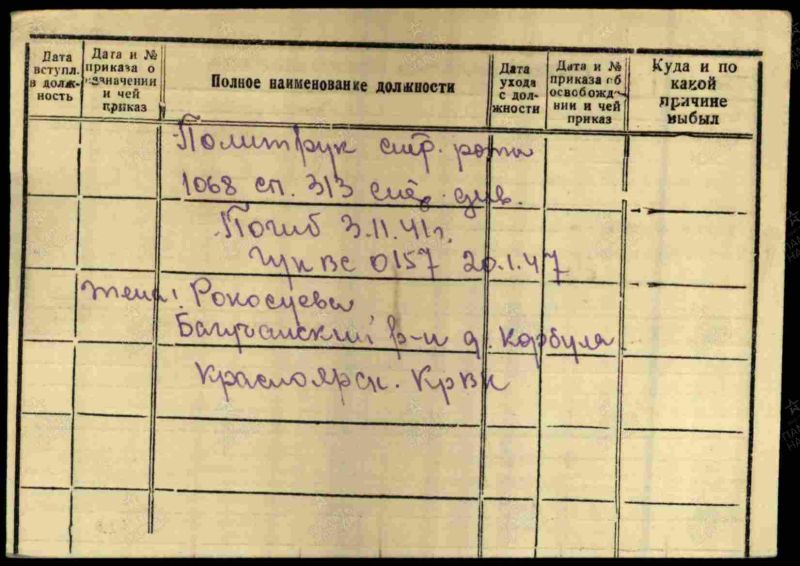 Дата вступл. в долж-ность
Дата и № приказа о назначении и чей приказ
Полное наименование должности
Дата ухода с дол-жности
Дата и № приказа об освобожд-нии и чей приказ
Куда и по какой причине выбыл
Политрук стр. рота
1068 сп. 313 стр. див.
Погиб 3.11.41г.
Гук ВС 0157 20.1.47
жена:
р-н д. Карбула
Красноярск. КрВК